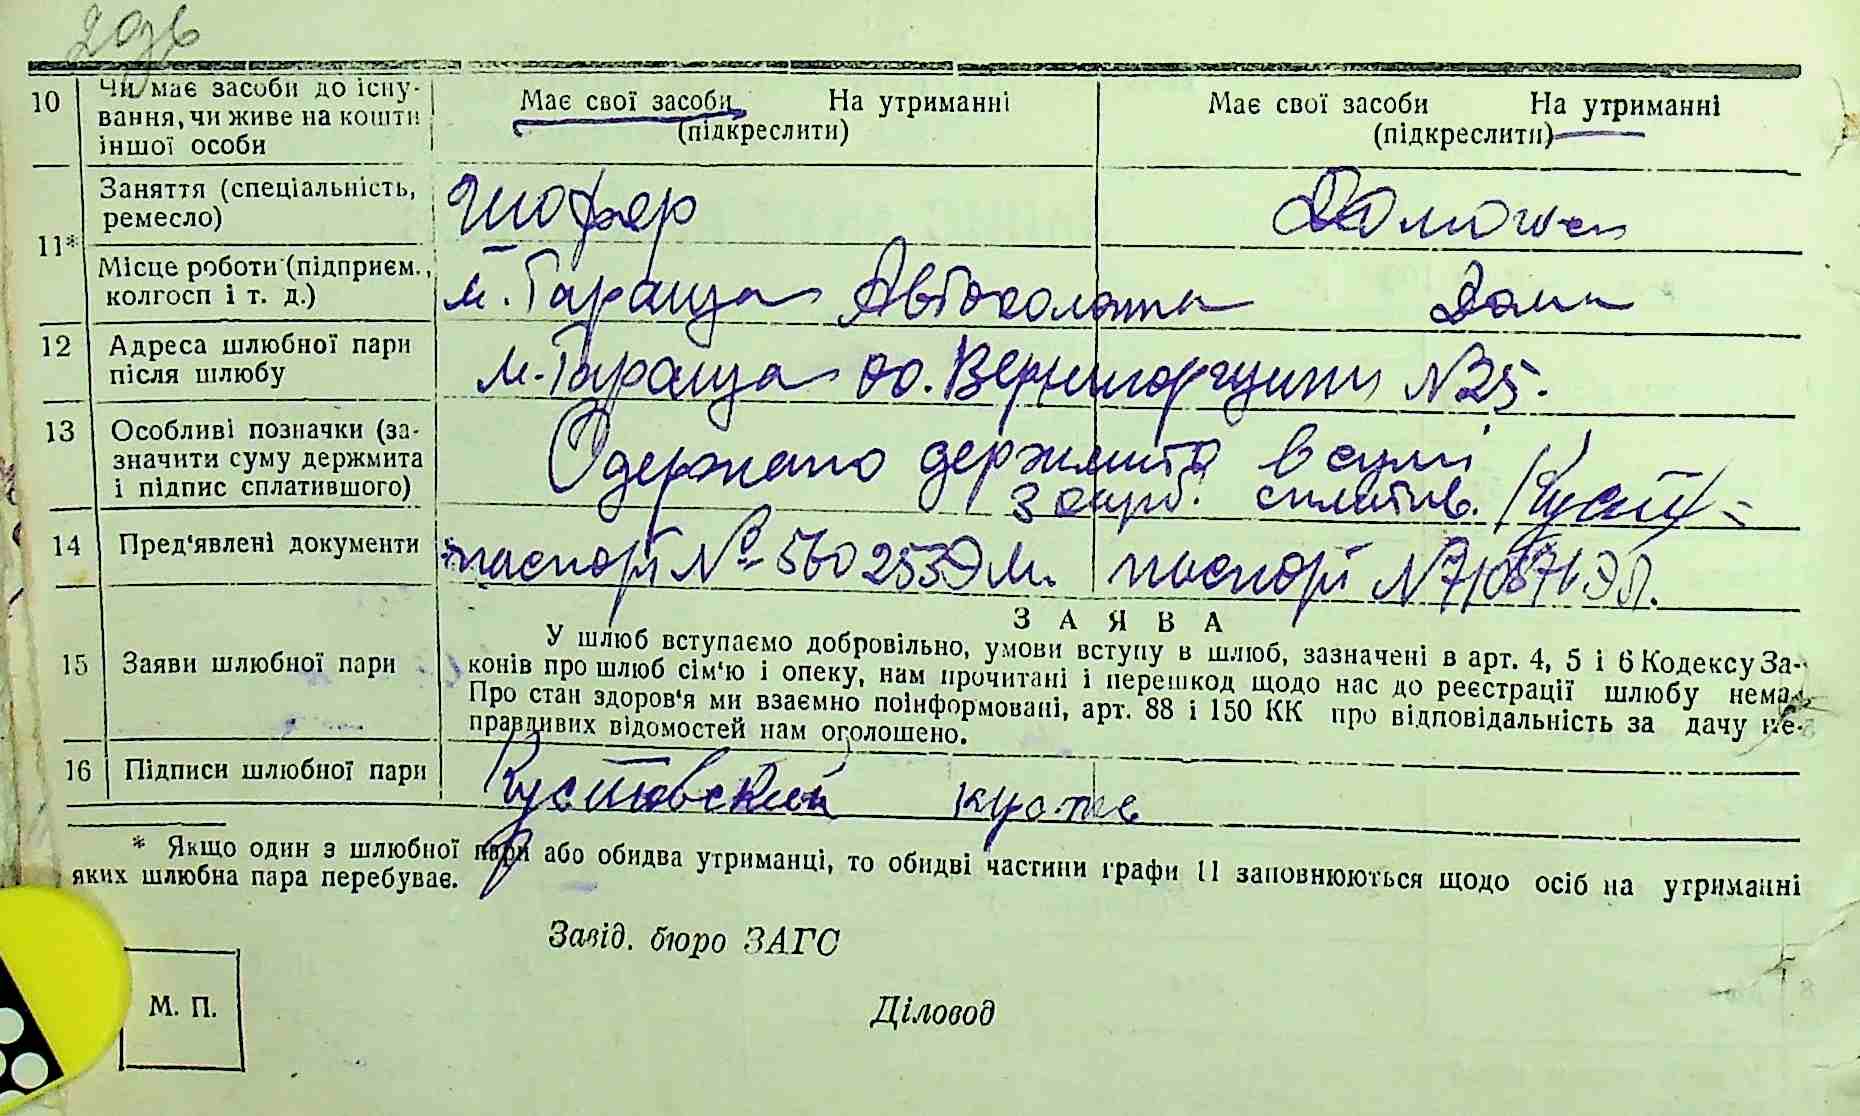 10 Чи має засоби до існу-
вання, чи живе на кошти
іншої особи
Має свої засоби На утриманні
(підкреслити)
Має свої засоби На утриманні
(підкреслити)
11* Заняття (спеціальність,
ремесло)
Шофер
Місце роботи (підприєм.,
колгосп і т. д.)
м. Тараща Автоколона Дома
12 Адреса шлюбної пари
після шлюбу
м. Тараща №25.
13 Особливі позначки (за-
значити суму держмита
і підпис сплатившого)
Одержано держмито в сумі
3 сплатив.
14 Пред'явлені документи
паспорт №
паспорт №
ЗАЯВА
15 Заяви шлюбної пари
У шлюб вступаємо добровільно, умови вступу в шлюб, зазначені в арт. 4, 5 і 6 Кодексу За-
конів про шлюб сім'ю і опеку, нам прочитані і перешкод щодо нас до реєстрації шлюбу нема.
Про стан здоров'я ми взаємно поінформовані, арт. 88 і 150 КК про відповідальність за дачу не-
правдивих відомостей нам оголошено.
16 Підписи шлюбної пари
* Якщо один з шлюбної пари або обидва утриманці, то обидві частини графи 11 заповнюються щодо осіб на утриманні
яких шлюбна пара перебуває.
Завід. бюро ЗАГС
М. П.
Діловод